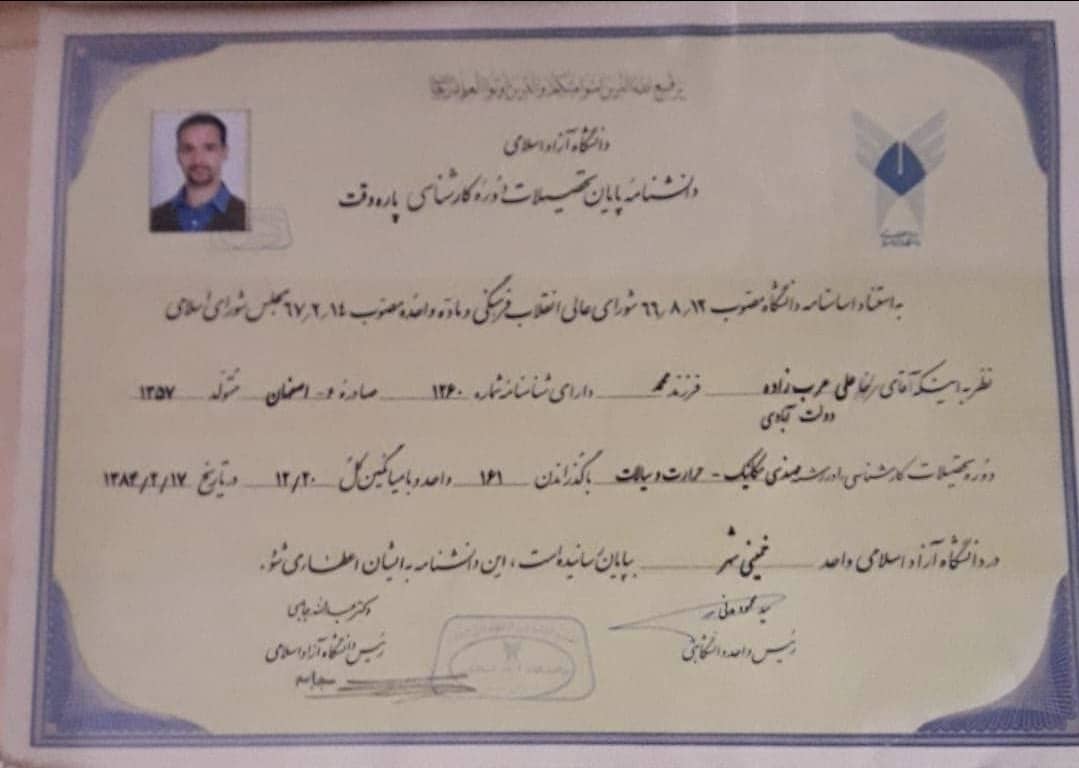 یرفع الله الذین آمنوا منکم والذین اوتوا العلم درجات
دانشگاه آزاد اسلامی
دانشنامه پایان تحصیلات دوره کارشناسی پاره وقت
به استناد اساسنامه دانشگاه مصوب ۶۶٫۸٫۱۲ شورای عالی انقلاب فرهنگی و ماده واحده مصوب ۶۷٫۲٫۱۴ مجلس شورای اسلامی
نظر به اینکه آقای رضا علی عرب زاده فرزند محمد دارای شناسنامه شماره ۱۲۶۰ صادره و- اصفهان متولد ۱۳۵۷
دولت آبادی
دوره تحصیلات کارشناسی را در رشته مهندسی مکانیک - حرارت و سیالات با گذراندن ۱۶۱ واحد و با میانگین کل ۱۲/۲۰ در تاریخ ۱۳۸۴/۲/۱۷
در دانشگاه آزاد اسلامی واحد خمینی شهر بپایان رسانیده است، این دانشنامه به ایشان اعطا می شود.
سید محمود مدنی
رئیس واحد دانشگاهی
دکتر عبدالله جاسبی
رئیس دانشگاه آزاد اسلامی